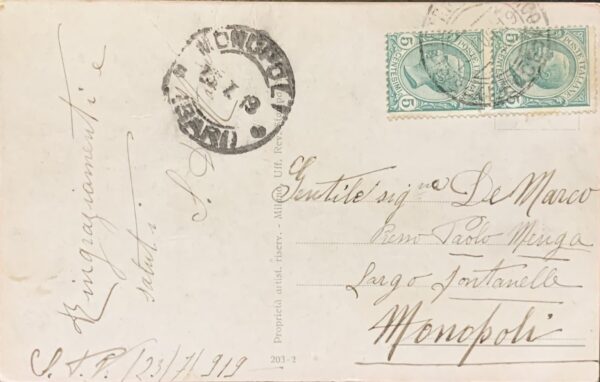 Ringraziamenti e
saluti
S. P.
S. T. P. (23/7/919
MONOPOLI
7. 19
(BARI)
Proprietà artist. riserv. - Milano, Uff. Rev. Stampa
203-2
5 CENTESIMI 5
POSTE ITALIANE
5 CENTESIMI 5
POSTE ITALIANE
Gentile sig.na De Marco
Presso Paolo Menga
Largo Fontanelle
Monopoli